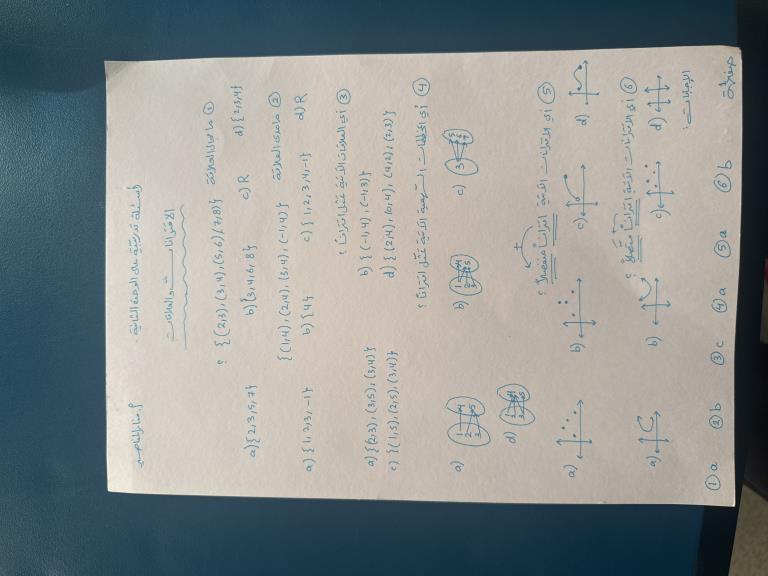 أسئلة تدريبية على الوحدة الثانية.
الاقترانات والعلاقات
① ما مجال العلاقة
{(2,3), (3,4), (5,6), (7,8)} ؟
a) {2,3,5,7} b) {3,4,6,8} c) R d) {2,3,4}
② ما مدى العلاقة
{(1,4), (2,4), (3,4), (-1,4)}
a) {1,2,3,-1} b) {4} c) {1,2,3,4,-1} d) R
③ أي العلاقات الآتية تمثل اقتراناً ؟
a) {(2,3), (3,5), (3,4)} b) {(-1,4), (-1,3)}
c) {(1,5), (2,5), (3,4)} d) {(2,4), (0,4), (4,2), (2,3)}
④ أي المخططات السهمية الآتية تمثل اقتراناً ؟
a) b) c)
d)
⑤ أي الاقترانات الآتية اقتراناً منفصلاً ؟
a) b) c) d)
⑥ أي الاقترانات الآتية اقتراناً متصلاً ؟
a) b) c) d)
الإجابات :
① a ② b ③ c ④ a ⑤ a ⑥ b